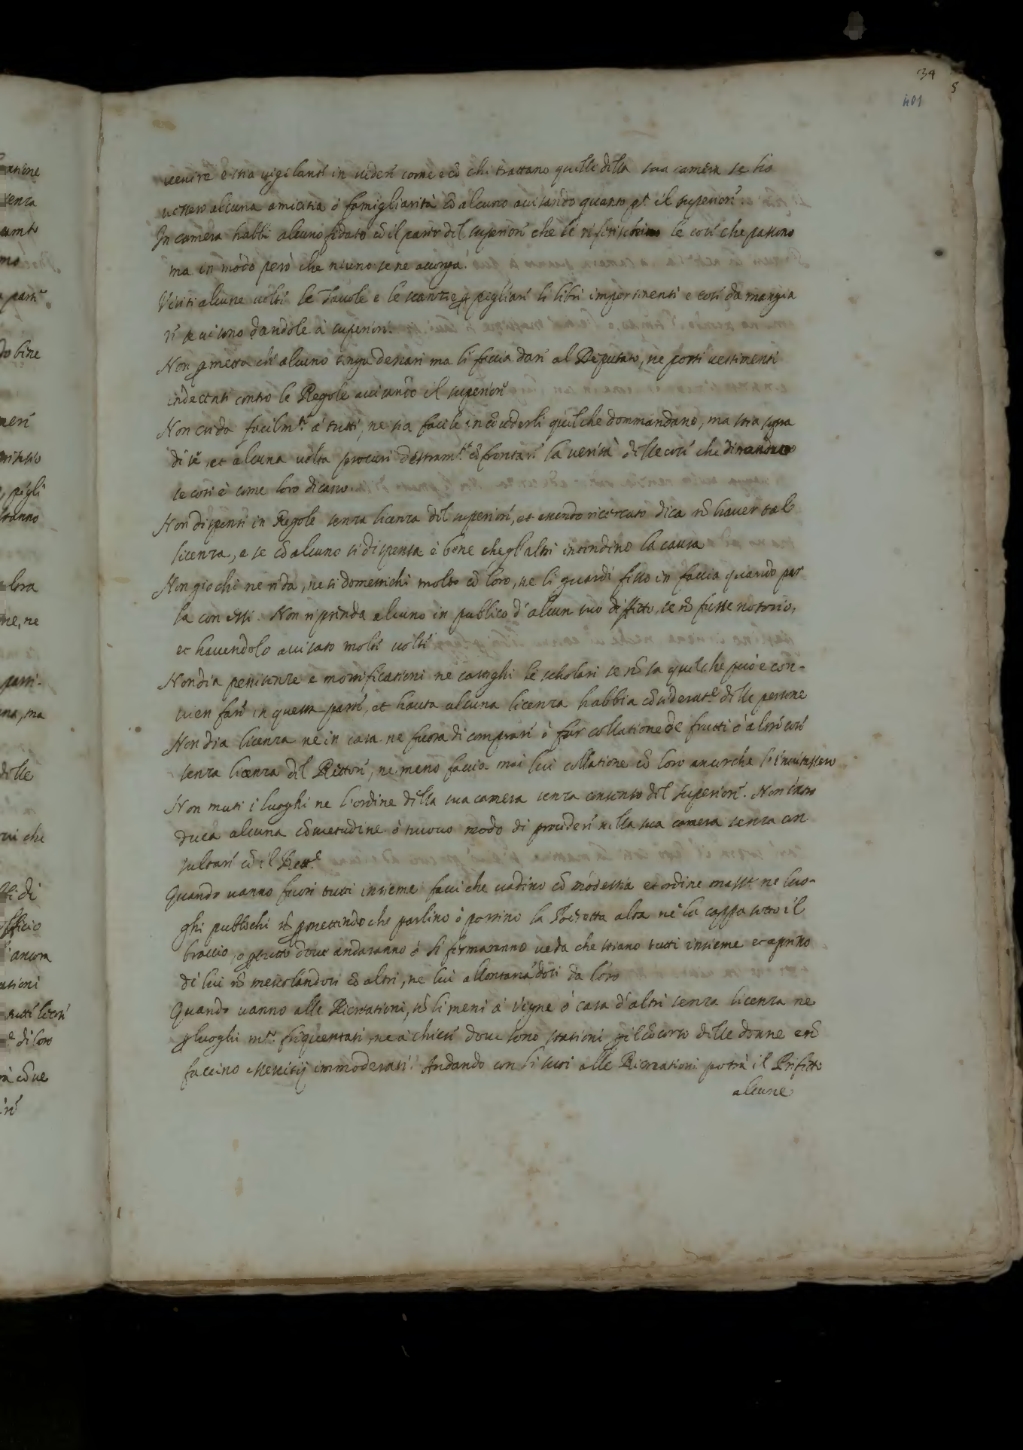 139
5
401
venire e stia vigilanti in vedere come e cō chi trattano quelli della sua camera se ha
vessero alcuna amicitia ò famigliarità cō alcuno avisando quanto pª il superiore
In camera habbi alcuno fidato cō il parere del superiore che li le cose che passano
ma in modo però che niuno se ne accorga.
Visiti alcune volte le Tavole e le scantie pigliare li libri impertinenti e cose da mangia
re se vi sono dandole à superiori.
Non pmetta ch' alcuno tenga denari ma li faccia dare al Deputato, ne porti vestimenti
indecenti contro le Regole avisando il superiore
Non creda facilmᵗᵉ à tutti, ne sia facile in cōcederli quel che dommandano, ma stia sopra
di se, et alcuna volta procuri destramᵗᵉ cōfrontare la verità delle cose che
se cosi è come loro dicano
Non dispensi in Regole senza licenza del superiore, et essendo ricercato dica nō haver tale
licenza, e se cō alcuno si dispensa è bene che gl'altri intendino la causa
Non giochi ne rida, ne si domestichi molto cō loro, ne li guardi fisso in faccia quando par
la con essi. Non riprenda alcuno in publico d'alcun suo difetto, se nō fusse notorio,
et havendolo avisato molte volte
Non dia penitenze e mortificationi ne castighi le scholari se nō sa quel che può e con-
vien fare in questa parte, et havuta alcuna licenza habbia delle persone
Non dia licenza ne in casa ne fuora di comprare ò far collatione de frutti ò altre cose
senza licenza del Rettore, ne meno faccia mai lui collatione cō loro ancorche l'invitassero
Non muti i luoghi ne l'ordine della sua camera senza consenso del superiore. Non intro
duca alcuna cōsuetudine ò nuovo modo di procedere nella sua camera senza con
sultare cō il Rettᵉ
Quando vanno fuori tutti insieme facci che vadino cō modestia et ordine massᵉ ne luo-
ghi publichi nō pmettendo che parlino ò portino la alta ne la cappa sotto il
braccio, e dove andaranno ò si fermaranno veda che stiano tutti insieme et appresso
di lui nō mescolandosi cō altri, ne lui allontanādosi da loro
Quando vanno alle Ricreationi, nō li meni à vigne ò casa d'altri senza licenza ne
p luoghi mᵗᵒ frequentati, ne à chiese dove sono stationi pil cōcorso delle donne e nō
faccino essercitij immoderati. Andando con li suoi alle Ricreationi potrà il Prefetto
alcune